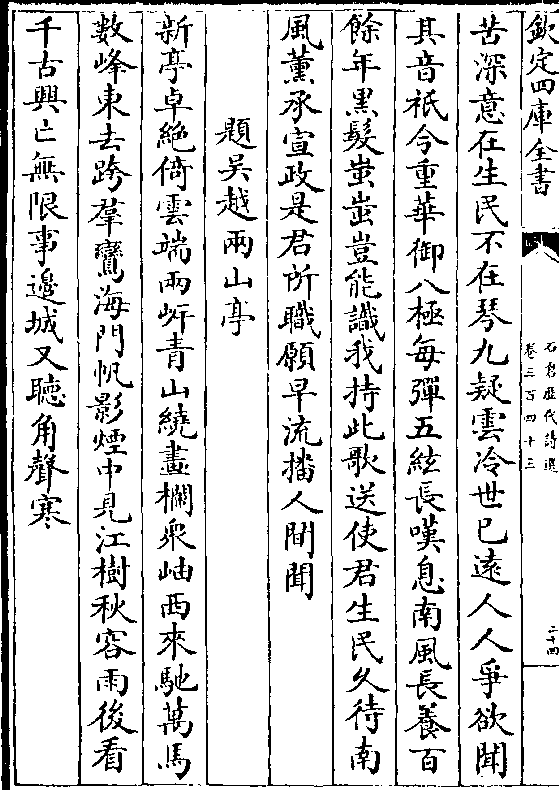 欽定四庫全書
石倉歷代詩選
卷三百四十三
二十四
苦深意在生民不在琴九疑雲冷世已遠人人爭欲聞
其音祇今重華御八極每彈五絃長嘆息南風長養百
餘年黑髮蚩蚩豈能識我持此歌送使君生民久待南
風薰承宣政是君所職願早流播人間聞
題吳越兩山亭
新亭卓絶倚雲端兩岍青山繞畫欄衆岫西來馳萬馬
數峰東去跨羣鸞海門帆影煙中見江樹秋容雨後看
千古興亡無限事邉城又聽角聲寒